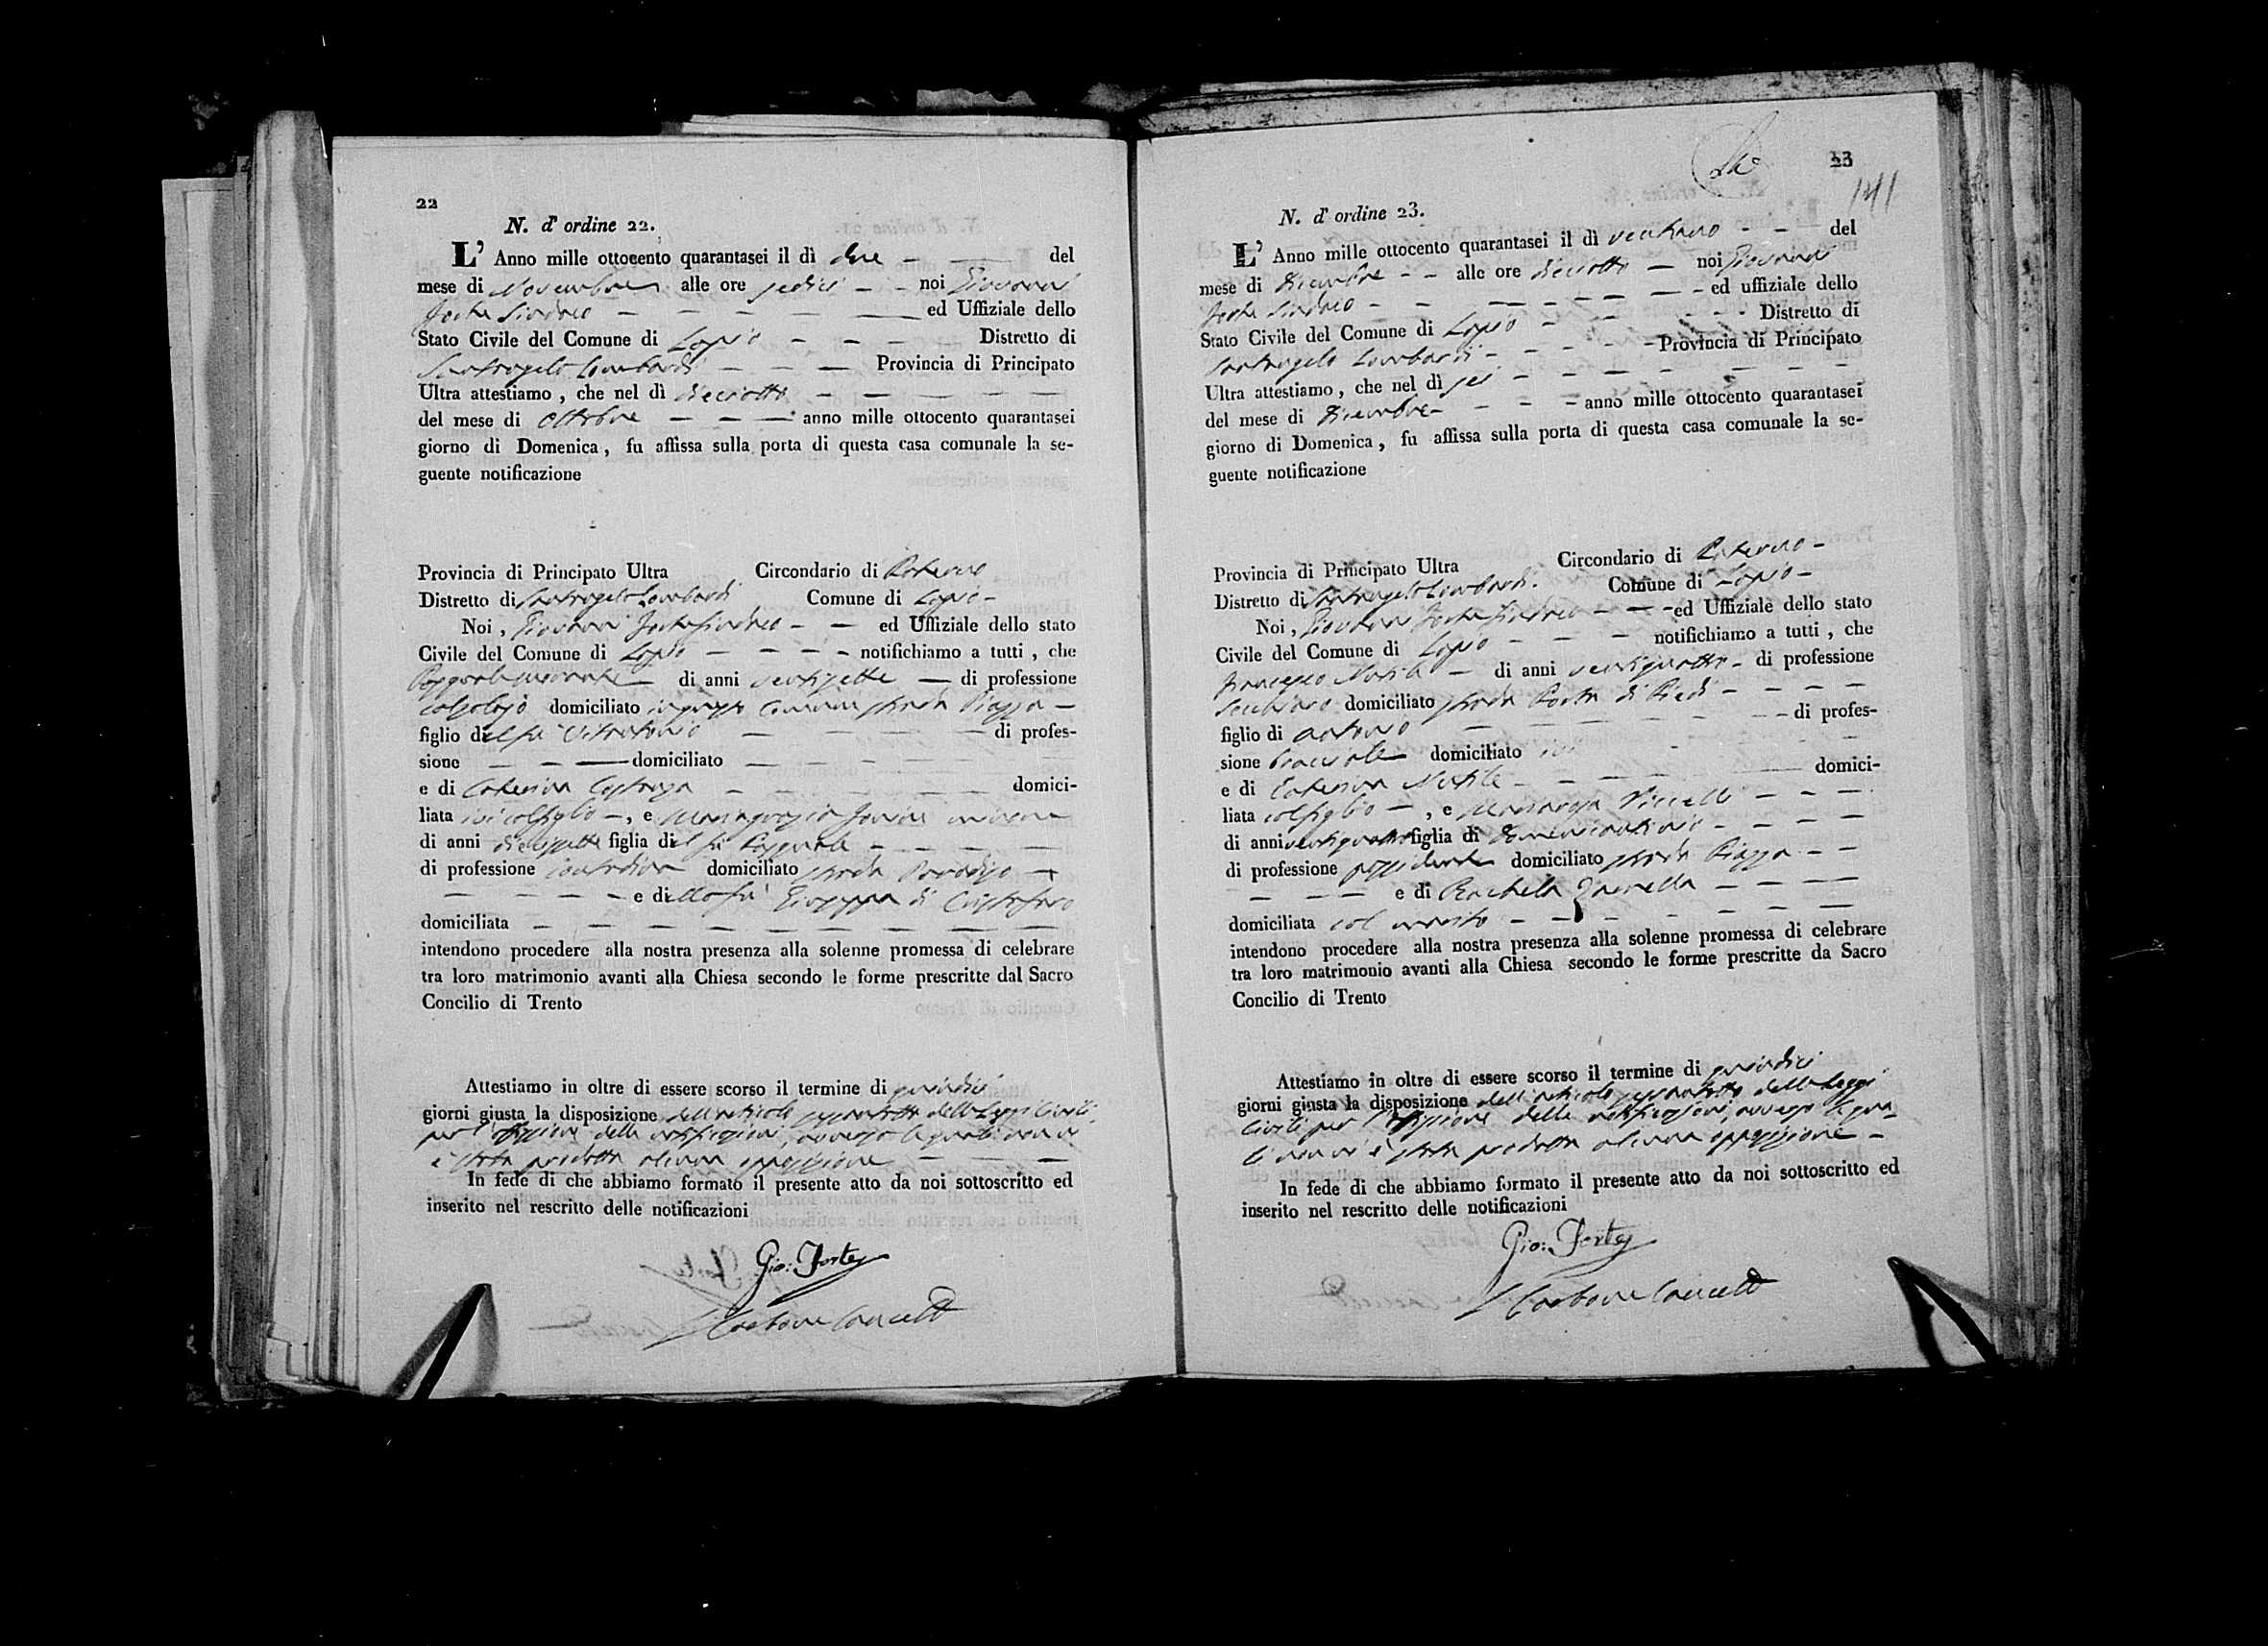 22
N. d' ordine 22.
L' Anno mille ottocento quarantasei il dì due del
mese di Novembre alle ore sedici noi Giovanni
Forte Sindaco ed Uffiziale dello
Stato Civile del Comune di Lapio Distretto di
Santangelo Lombardi Provincia di Principato
Ultra attestiamo , che nel dì dieciotto
del mese di Ottobre anno mille ottocento quarantasei
giorno di Domenica, fu affissa sulla porta di questa casa comunale la se-
guente notificazione
Provincia di Principato Ultra Circondario di Paterno
Distretto di Santangelo Lombardi Comune di Lapio
Noi , Giovanni Forte Sindaco ed Uffiziale dello stato
Civile del Comune di Lapio notifichiamo a tutti , che
Pasquale di anni ventisette di professione
calzolajo domiciliato in questo Comune strada Piazza
figlio del fu Vitantonio di profes-
sione domiciliato
e di Caterina domici-
liata ivi col figlio , e Mariagrazia
di anni diecisette figlia del fu Pasquale
di professione contadina domiciliato strada
e della fu Giuseppa di Cristofaro
domiciliata
intendono procedere alla nostra presenza alla solenne promessa di celebrare
tra loro matrimonio avanti alla Chiesa secondo le forme prescritte dal Sacro
Concilio di Trento
Attestiamo in oltre di essere scorso il termine di quindici
giorni giusta la disposizione dell'articolo sessantotto delle Leggi Civili
per l'affissione delle notificazioni, avverso le quali non vi
è stata prodotta alcuna opposizione
In fede di che abbiamo formato il presente atto da noi sottoscritto ed
inserito nel rescritto delle notificazioni
Gio: Forte
Carbone Cancell
23
141
N. d' ordine 23.
L' Anno mille ottocento quarantasei il dì ventuno del
mese di Dicembre alle ore dieciotto noi Giovanni
Forte Sindaco ed uffiziale dello
Stato Civile del Comune di Lapio Distretto di
Santangelo Lombardi Provincia di Principato
Ultra attestiamo , che nel dì sei
del mese di Dicembre anno mille ottocento quarantasei
giorno di Domenica, fu affissa sulla porta di questa casa comunale la se-
guente notificazione
Provincia di Principato Ultra Circondario di Paterno
Distretto di Santangelo Lombardi Comune di Lapio
Noi , Giovanni Forte Sindaco ed Uffiziale dello stato
Civile del Comune di Lapio notifichiamo a tutti , che
Francesco di anni ventiquattro di professione
domiciliato strada Porta di Piedi
figlio di Antonio di profes-
sione bracciale domiciliato ivi
e di Caterina domici-
liata col figlio , e
di anni ventiquattro figlia di Domenicantonio
di professione possidente domiciliato strada Piazza
e di Rachela
domiciliata col marito
intendono procedere alla nostra presenza alla solenne promessa di celebrare
tra loro matrimonio avanti alla Chiesa secondo le forme prescritte da Sacro
Concilio di Trento
Attestiamo in oltre di essere scorso il termine di quindici
giorni giusta la disposizione dell'articolo sessantotto delle Leggi
Civili per l'affissione delle notificazioni, avverso le qua-
li non vi è stata prodotta alcuna opposizione
In fede di che abbiamo formato il presente atto da noi sottoscritto ed
inserito nel rescritto delle notificazioni
Gio: Forte
Carbone Cancell